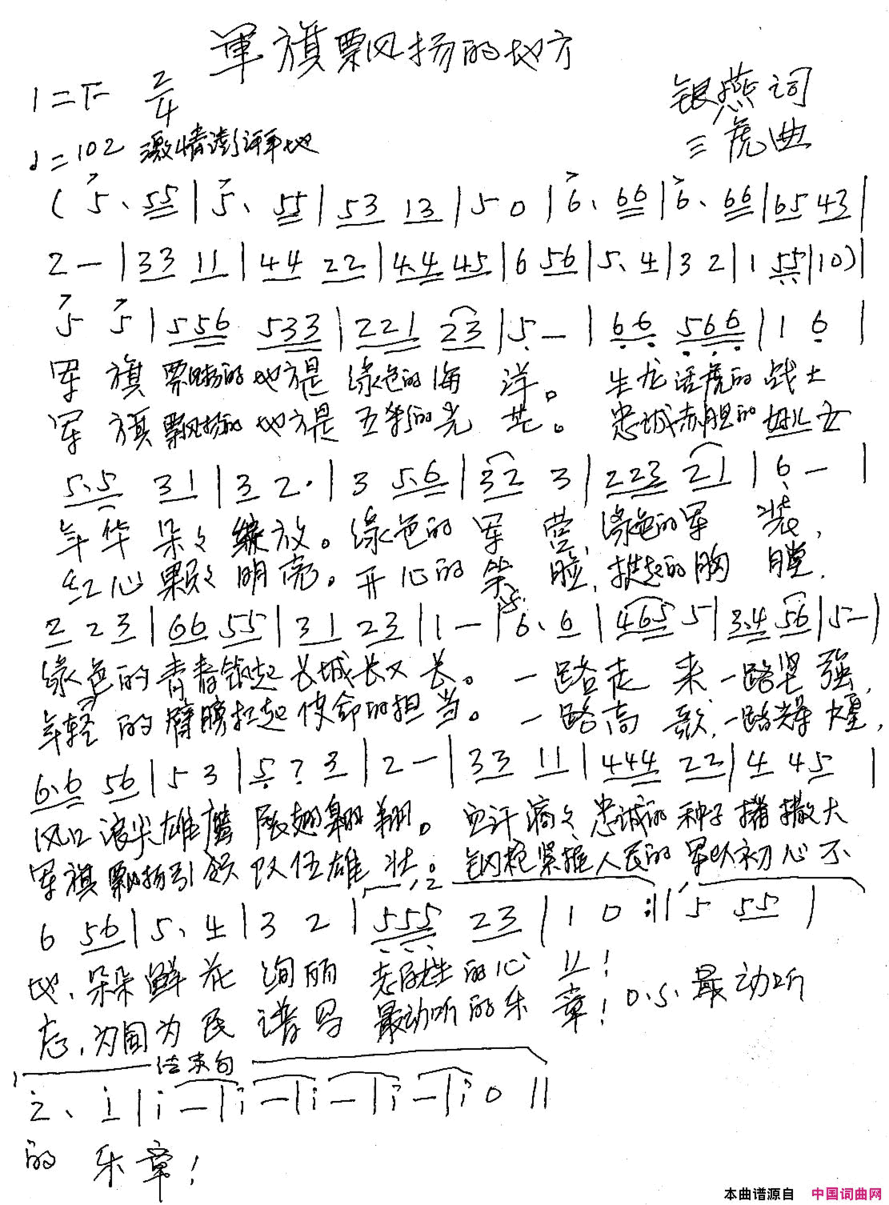 軍旗飘扬的地方
1=F 2/4
银燕词
♩=102 激情澎湃地
三虎曲
(5、55|5、55|53 13|5 0|6、66|6、66|65 43|
2 —|33 11|44 22|4.4 45|6 56|5、4|3 2|1 55|10)|
5 5|556 533|221 23|5 —|66 566|1 6|
军旗飘扬的地方是绿色的海洋。生龙活虎的战士
军旗飘扬的地方是五彩的光芒。忠诚赤胆的好儿女
5.5 31|3 2·|3 5.6|32 3|223 21|6 —|
年华朵々绽放。绿色的军营,绿色的军装,
红心颗々明亮。开心的笑脸,挺起的胸膛,
2 23|66 55|31 23|1 —|6、6|465 5|3.4 56|5 —|
绿色的青春筑起长城长又长。一路走来一路坚强,
年轻的臂膀扛起使命的担当。一路高歌,一路辉煌,
6.6 56|5 3|5 2 3|2 —|33 11|444 22|4 45|
风口浪尖雄鹰展翅翱翔。血汗滴々忠诚的种子播撒大
军旗飘扬引领队伍雄壮。钢枪紧握人民的军队初心不
6 56|5、4|3 2|555 23|1 0:||5 55|
地、朵朵鲜花绚丽老百姓的心上!
忘,为国为民谱写最动听的乐章!D.S.最动听
结束句
2、1|1 —|1 —|1 —|1 —|1 0||
的 乐章!
本曲谱源自 中国词曲网